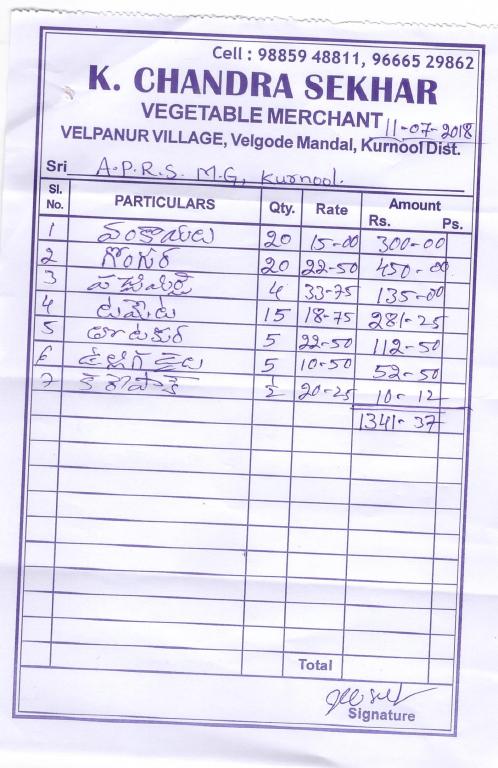 Cell : 98859 48811, 96665 29862
K. CHANDRA SEKHAR
VEGETABLE MERCHANT 11-07-2018
VELPANUR VILLAGE, Velgode Mandal, Kurnool Dist.
Sri A.P.R.S. M.G, Kurnool.
Sl. No. PARTICULARS Qty. Rate Amount Rs. Ps.
1 వంకాయలు 20 15-00 300-00
2 గోంగూర 20 22-50 450-00
3 పచ్చిమిర్చి 4 33-75 135-00
4 టమోట 15 18-75 281-25
5 తోటకూర 5 22-50 112-50
6 5 10-50 52-50
7 కరివేపాకు ½ 20-25 10-12
1341-37
Total
Signature